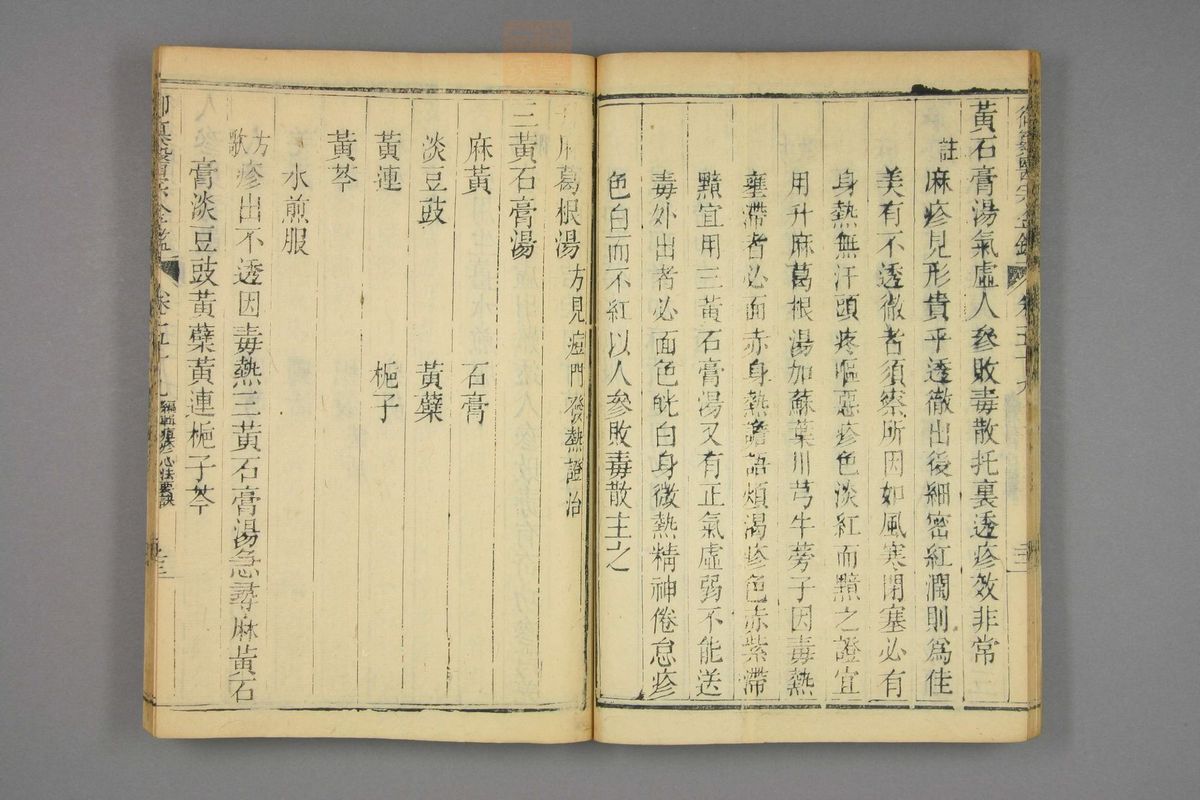 御纂醫宗金鑑 卷五十九
黃石膏湯氣虛人參敗毒散托裏透疹效非常
註
麻疹見形貴乎透徹出後細密紅潤則爲佳
美有不透徹者須察所因如風寒閉塞必有
身熱無汗頭疼嘔惡疹色淡紅而黯之證宜
用升麻葛根湯加蘇葉川芎牛蒡子因毒熱
壅滯者必面赤身熱譫語煩渴疹色赤紫滯
黯宜用三黃石膏湯又有正氣虛弱不能送
毒外出者必面色㿠白身微熱精神倦怠疹
色白而不紅以人參敗毒散主之
麻葛根湯 方見痘門發熱證治
三黃石膏湯
麻黃 石膏
淡豆豉 黃蘗
黃連 梔子
黃芩
水煎服
方歌 疹出不透因毒熱三黃石膏湯急尋麻黃石
膏淡豆豉黃蘗黃連梔子芩
御纂醫宗金鑑 卷五十九 編輯痘疹心法要訣